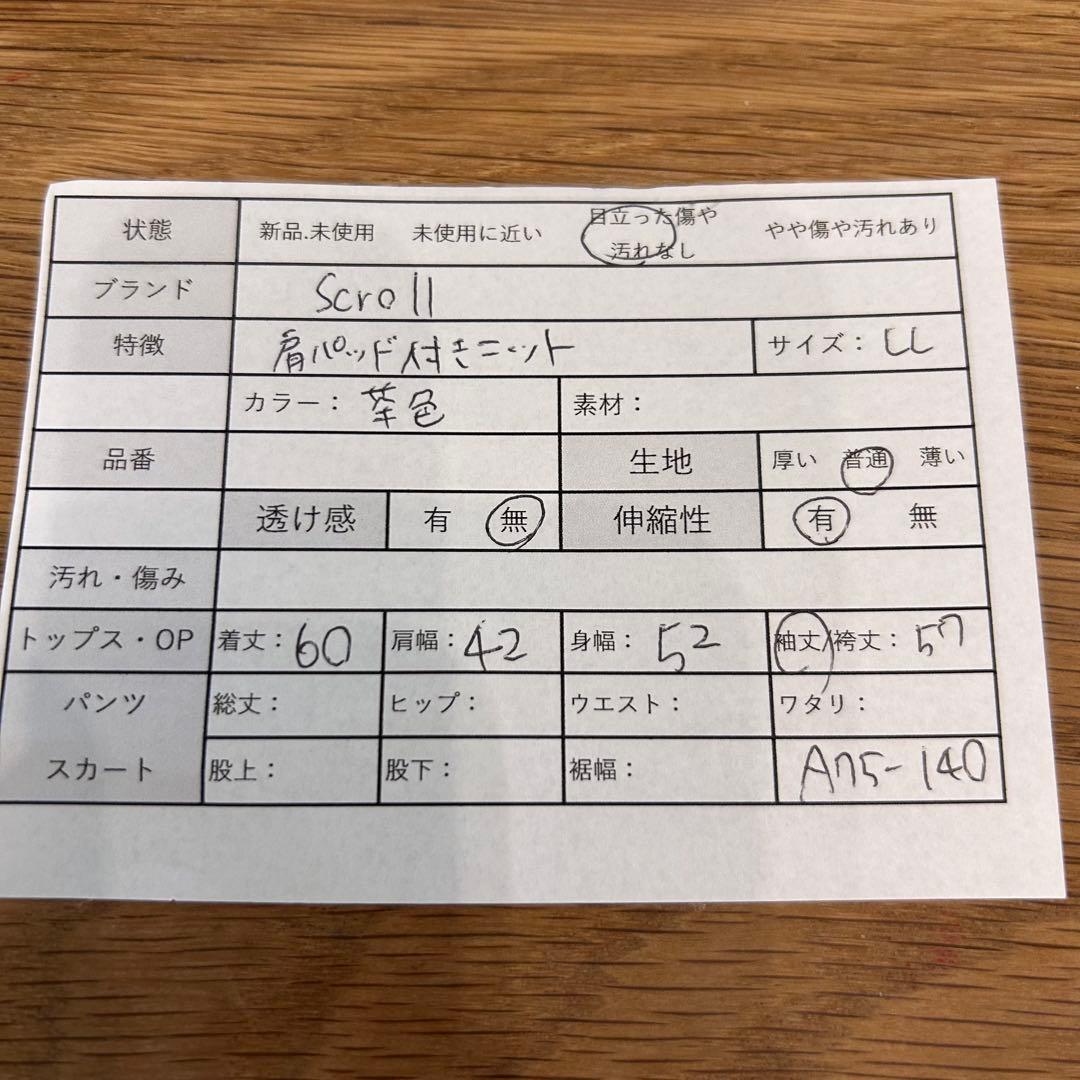 状態 新品.未使用 未使用に近い 目立った傷や汚れなし やや傷や汚れあり
ブランド Scroll
特徴 肩パッド付きニット サイズ： LL
カラー： 茶色 素材：
品番 生地 厚い 普通 薄い
透け感 有 無 伸縮性 有 無
汚れ・傷み
トップス・OP 着丈：60 肩幅：42 身幅：52 袖丈/裄丈：57
パンツ 総丈： ヒップ： ウエスト： ワタリ：
スカート 股上： 股下： 裾幅： A75-140